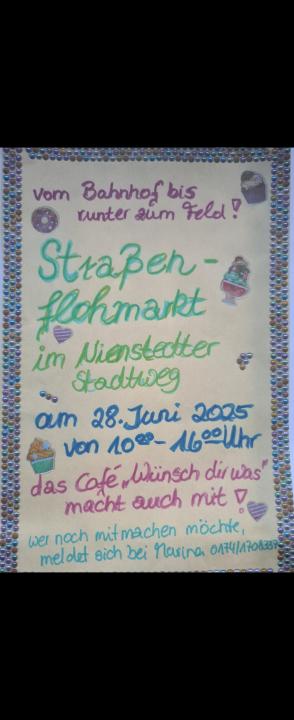 vom Bahnhof bis
runter zum Feld!
Straßen-
flohmarkt
im Nienstedter
Stadtweg
am 28. Juni 2025
von 10⁰⁰-16⁰⁰ Uhr
das Café „Wünsch dir was"
macht auch mit!
wer noch mitmachen möchte,
meldet sich bei Marina